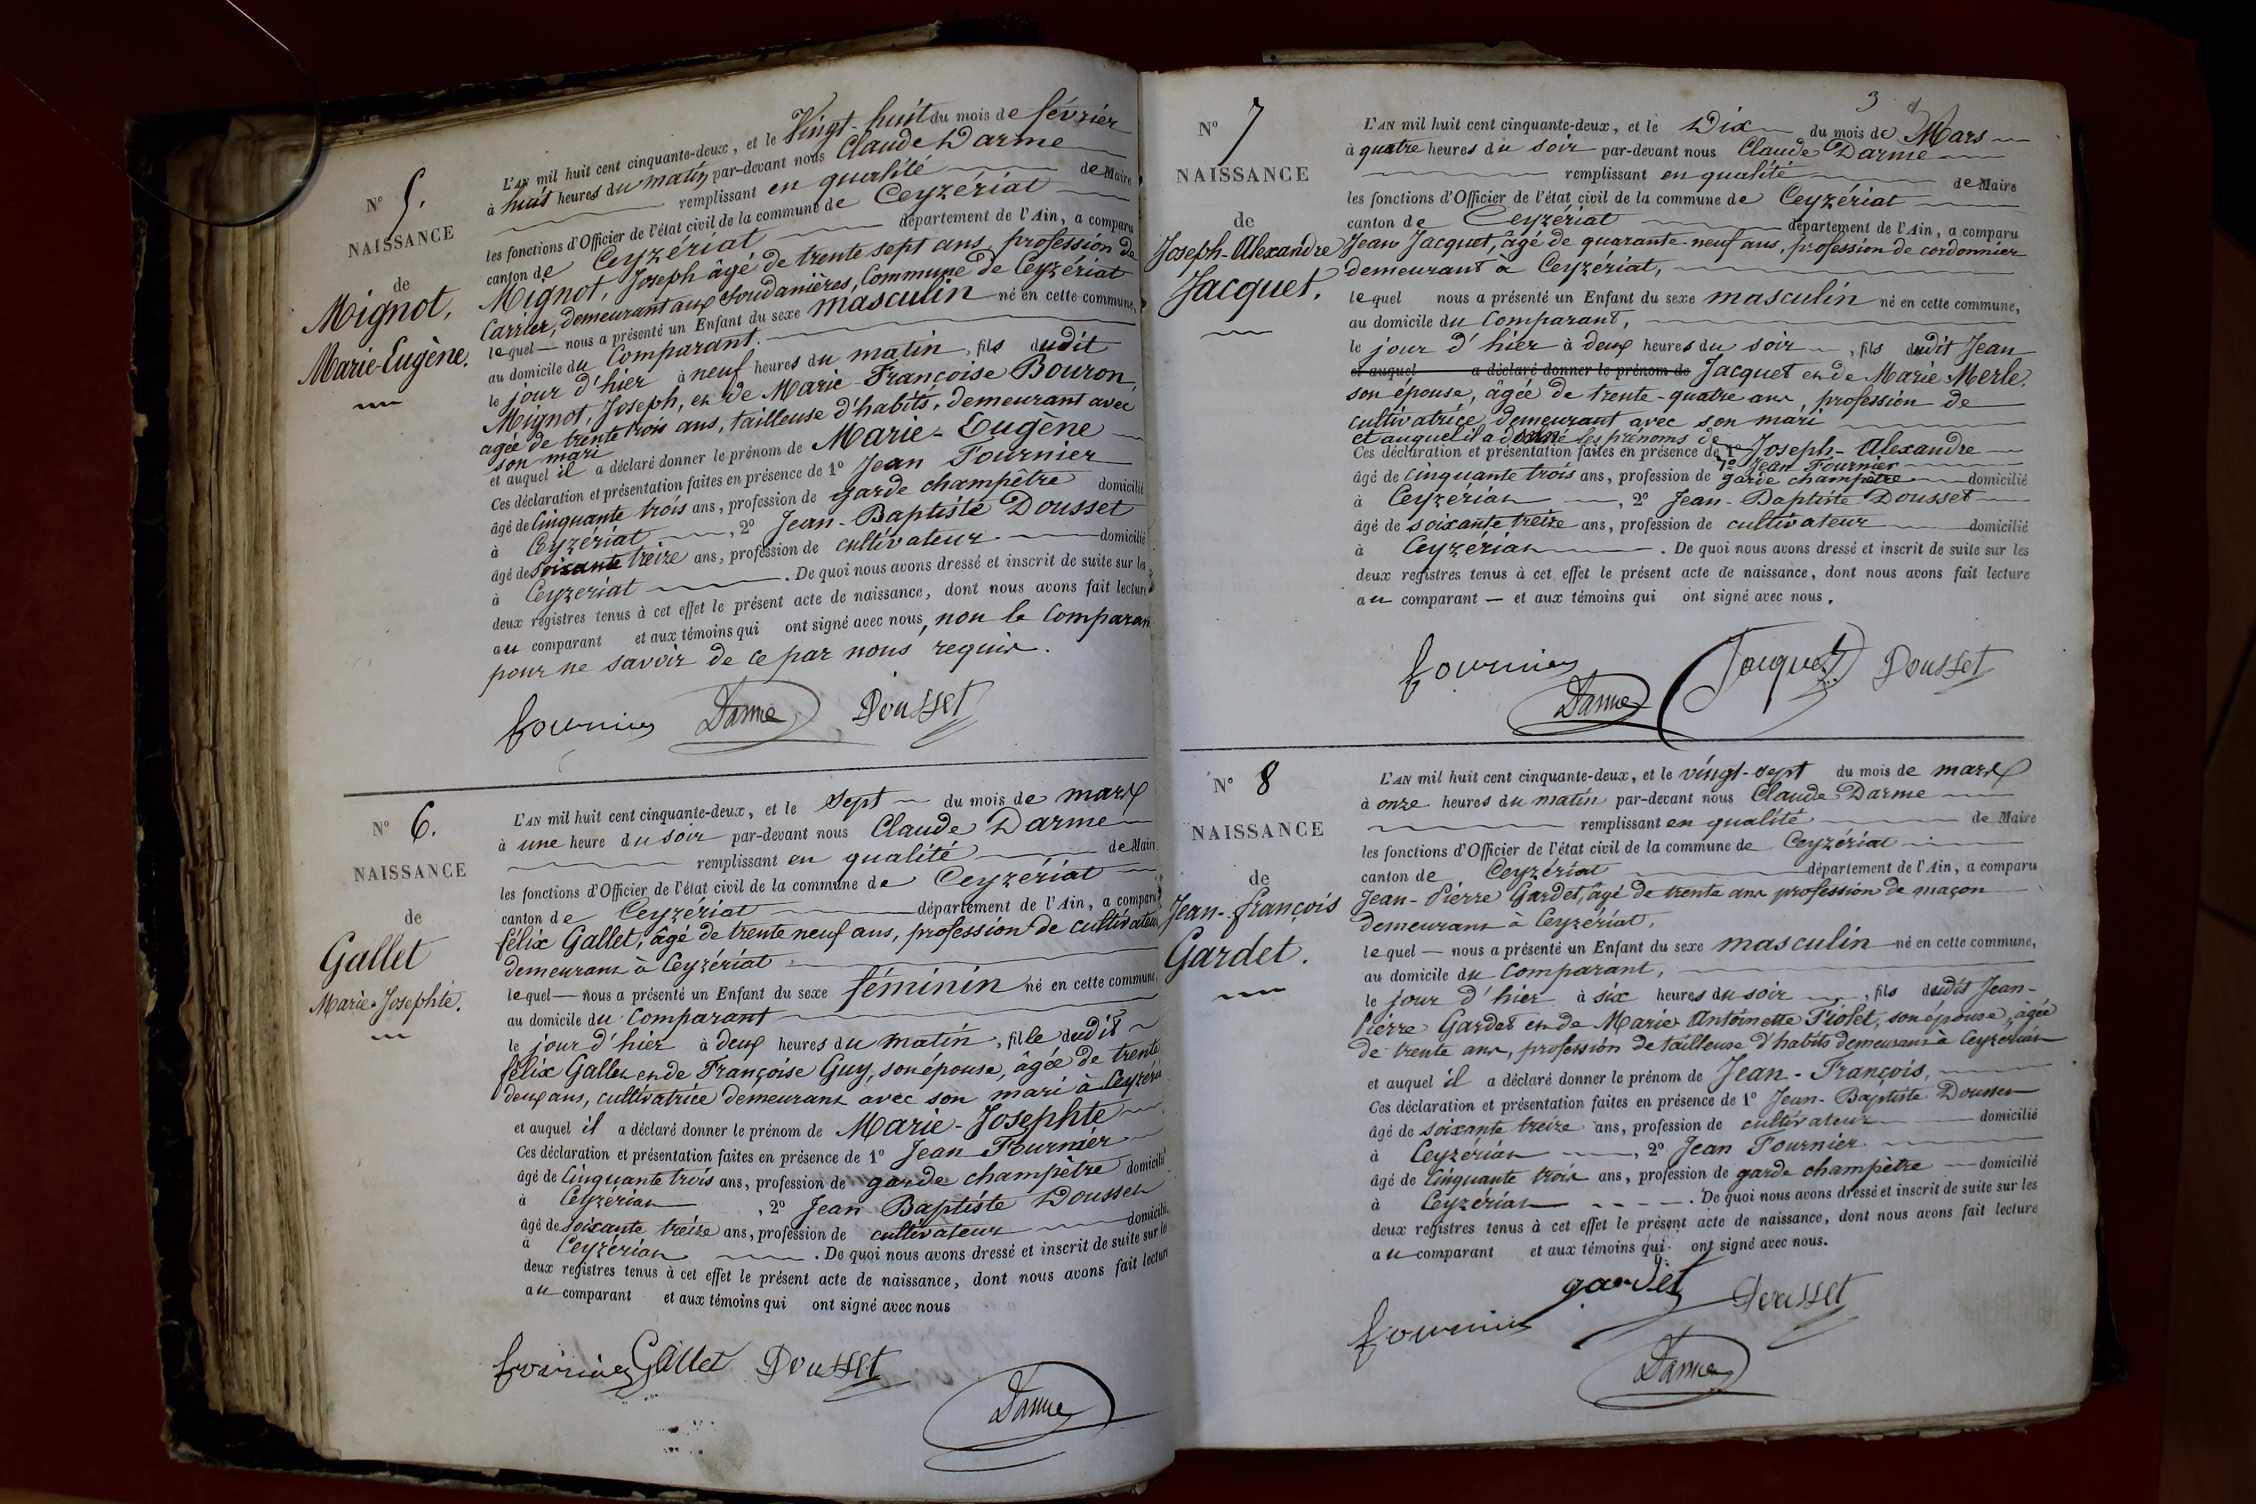 N° 5.
NAISSANCE
de
Mignot,
Marie-Eugène.
L'AN mil huit cent cinquante-deux, et le Vingt-huit du mois de février
à huit heures du matin par-devant nous Claude Darme
remplissant en qualité de Maire
les fonctions d'Officier de l'état civil de la commune de Ceyzériat
canton de Ceyzériat département de l'Ain, a comparu
Mignot, Joseph âgé de trente sept ans, profession de
Carrier, demeurant aux Soudanières, Commune de Ceyzériat
lequel nous a présenté un Enfant du sexe masculin né en cette commune,
au domicile du Comparant.
le jour d'hier à neuf heures du matin, fils dudit
Mignot, Joseph, et de Marie Françoise Bouron,
agée de trente trois ans, tailleuse d'habits, demeurant avec
son mari
et auquel il a déclaré donner le prénom de Marie-Eugène
Ces déclaration et présentation faites en présence de 1° Jean Fournier
âgé de Cinquante trois ans, profession de garde champêtre domicilié
à Ceyzériat, 2° Jean-Baptiste Dousset
âgé de soixante treize ans, profession de cultivateur domicilié
à Ceyzeriat. De quoi nous avons dressé et inscrit de suite sur les
deux registres tenus à cet effet le présent acte de naissance, dont nous avons fait lecture
au comparant et aux témoins qui ont signé avec nous, non le Comparant
pour ne savoir de ce par nous requis.
fournier Darme Dousset
N° 6.
NAISSANCE
de
Gallet
Marie-Josephte.
L'AN mil huit cent cinquante-deux, et le sept du mois de mars
à une heure du soir par-devant nous Claude Darme
remplissant en qualité de Maire
les fonctions d'Officier de l'état civil de la commune de Ceyzériat
canton de Ceyzériat département de l'Ain, a comparu
félix Gallet, âgé de trente neuf ans, profession de cultivateur
demeurant à Ceyzériat
lequel nous a présenté un Enfant du sexe féminin né en cette commune,
au domicile du Comparant
le jour d'hier à deux heures du matin, fille dudit
félix Gallet et de Françoise Guy, son épouse, âgée de trente
deux ans, cultivatrice demeurant avec son mari à Ceyzériat
et auquel il a déclaré donner le prénom de Marie-Josephte
Ces déclaration et présentation faites en présence de 1° Jean Fournier
âgé de Cinquante trois ans, profession de garde champêtre domicilié
à Ceyzériat, 2° Jean Baptiste Dousset
âgé de soixante treize ans, profession de cultivateur domicilié
à Ceyzériat. De quoi nous avons dressé et inscrit de suite sur les
deux registres tenus à cet effet le présent acte de naissance, dont nous avons fait lecture
au comparant et aux témoins qui ont signé avec nous
fournier Gallet Dousset
Darme
3
N° 7
NAISSANCE
de
Joseph-Alexandre
Jacquet.
L'AN mil huit cent cinquante-deux, et le Dix du mois de Mars
à quatre heures du soir par-devant nous Claude Darme
remplissant en qualité de Maire
les fonctions d'Officier de l'état civil de la commune de Ceyzériat
canton de Ceyzériat département de l'Ain, a comparu
Jean Jacquet, âgé de quarante-neuf ans, profession de cordonnier
demeurant à Ceyzériat,
lequel nous a présenté un Enfant du sexe masculin né en cette commune,
au domicile du Comparant,
le jour d'hier à deux heures du soir, fils dudit Jean
et auquel a déclaré donner le prénom de Jacquet et de Marie Merle,
son épouse, âgée de trente-quatre ans, profession de
cultivatrice demeurant avec son mari
et auquel il a donné les prénoms de
Ces déclaration et présentation faites en présence de 1° Joseph-Alexandre
1° Jean Fournier
âgé de cinquante trois ans, profession de garde champêtre domicilié
à Ceyzériat, 2° Jean-Baptiste Dousset
âgé de soixante treize ans, profession de cultivateur domicilié
à Ceyzériat. De quoi nous avons dressé et inscrit de suite sur les
deux registres tenus à cet effet le présent acte de naissance, dont nous avons fait lecture
au comparant et aux témoins qui ont signé avec nous.
fournier Jacquet Dousset
Darme
N° 8
NAISSANCE
de
Jean-françois
Gardet.
L'AN mil huit cent cinquante-deux, et le vingt-sept du mois de mars
à onze heures du matin par-devant nous Claude Darme
remplissant en qualité de Maire
les fonctions d'Officier de l'état civil de la commune de Ceyzériat
canton de Ceyzériat département de l'Ain, a comparu
Jean-Pierre Gardet, âgé de trente ans profession de maçon
demeurant à Ceyzériat,
lequel nous a présenté un Enfant du sexe masculin né en cette commune,
au domicile du Comparant,
le jour d'hier à six heures du soir, fils dudit Jean-
Pierre Gardet et de Marie Antoinette Fiolet, son épouse, âgée
de trente ans, profession de tailleuse d'habits demeurant à Ceyzériat
et auquel il a déclaré donner le prénom de Jean-François,
Ces déclaration et présentation faites en présence de 1° Jean-Baptiste Dousset
âgé de soixante treize ans, profession de cultivateur domicilié
à Ceyzériat, 2° Jean Fournier
âgé de Cinquante trois ans, profession de garde champêtre domicilié
à Ceyzériat. De quoi nous avons dressé et inscrit de suite sur les
deux registres tenus à cet effet le présent acte de naissance, dont nous avons fait lecture
au comparant et aux témoins qui ont signé avec nous.
gardet
fournier Dousset
Darme